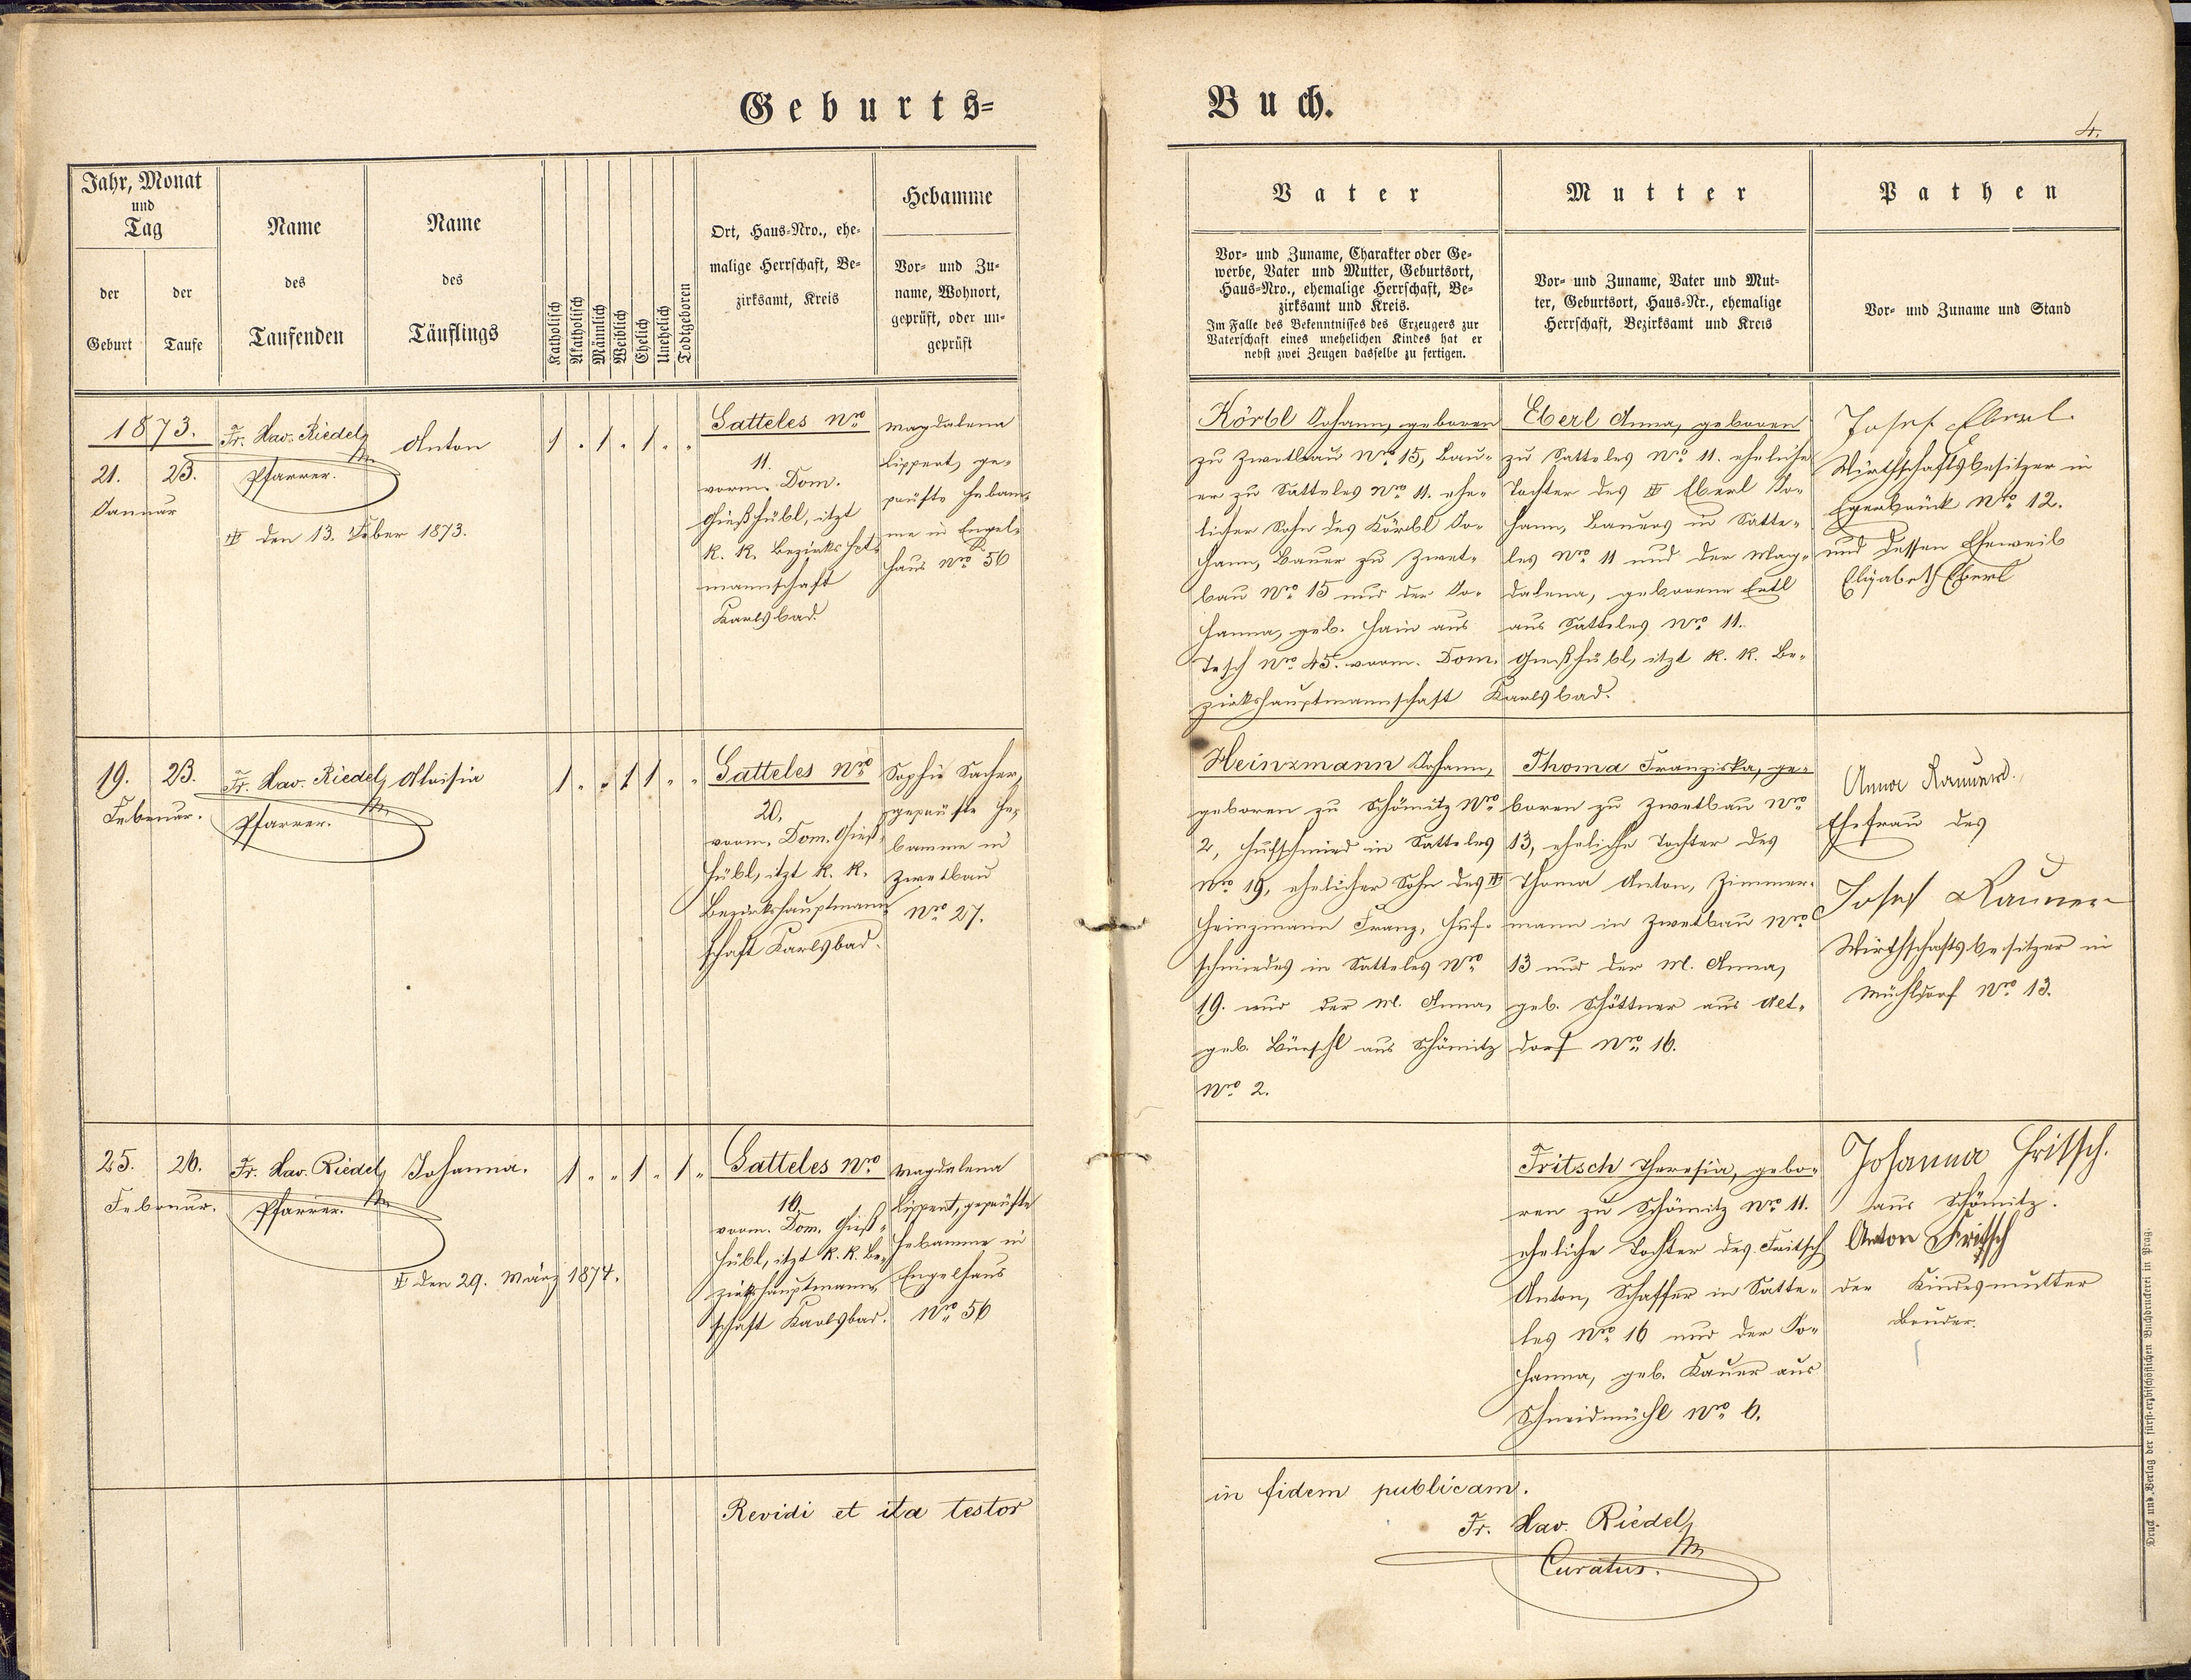 Geburts=
Buch.
4.
Jahr, Monat
und
Tag
der
Geburt
der
Taufe
Name
des
Taufenden
Name
des
Täuflings
Katholisch
Akatholisch
Männlich
Weiblich
Ehelich
Unehelich
Todtgeboren
Ort, Haus=Nro., ehe=
malige Herrschaft, Be=
zirksamt, Kreis
Hebamme
Vor= und Zu=
name, Wohnort,
geprüft, oder un=
geprüft
Vater
Vor= und Zuname, Charakter oder Ge=
werbe, Vater und Mutter, Geburtsort,
Haus=Nro., ehemalige Herrschaft, Be=
zirksamt und Kreis.
Im Falle des Bekenntnisses des Erzeugers zur
Vaterschaft eines unehelichen Kindes hat er
nebst zwei Zeugen dasselbe zu fertigen.
Mutter
Vor= und Zuname, Vater und Mut=
ter, Geburtsort, Haus=Nr., ehemalige
Herrschaft, Bezirksamt und Kreis
Pathen
Vor= und Zuname und Stand
1873.
21. 23.
Januar
Fr. Xav. Riedel
Pfarrer.
den 13. Feber 1873.
Anton
1 . 1 . 1 . "
Satteles Nro
11.
vorm. Dom.
Gießhübl, itzt
k. k. Bezirkshpt=
mannschaft
Karlsbad.
Magdalena
Lippert, ge=
prüfte Hebam=
me in Engel=
haus Nro 56
Körbl Johann, geboren
zu Zwetbau Nro 15, Bau=
er zu Satteles Nro 11. ehe=
licher Sohn des Körbl Jo=
hann, Bauer zu Zwet=
bau Nro 15 und der Jo=
hanna, geb. Hain aus
Tesch Nro 45. vorm. Dom. Gießhübl, itzt k. k. Be=
zirkshauptmannschaft Karlsbad.
Eberl Anna, geboren
zu Satteles Nro 11. eheliche
Tochter des Eberl Jo=
hann, Bauers in Satte=
les Nro 11 und der Mag=
dalena, geborene Ertl
aus Satteles Nro 11.
Josef Eberl
Wirthschaftsbesitzer in
Egerbrück Nro 12.
und dessen Eheweib
Elisabeth Eberl
19. 23.
Februar.
Fr. Xav. Riedel
Pfarrer.
Aloisia
1 . . 1 1 " "
Satteles Nro
20.
vorm. Dom. Gieß=
hübl, itzt k. k.
Bezirkshauptmann=
schaft Karlsbad.
Sophie Sacher,
geprüfte He=
bamme in
Zwetbau
Nro 27.
Heinzmann Johann,
geboren zu Schömitz Nro
2, Hufschmied in Satteles
Nro 19, ehelicher Sohn des
Heinzmann Franz, Huf=
schmiedes in Satteles Nro
19. und der M. Anna,
geb. Bürschl aus Schömitz
Nro 2.
Thoma Franziska, ge=
boren zu Zwetbau Nro
13, eheliche Tochter des
Thoma Anton, Zimmer=
mann in Zwetbau Nro
13 und der M. Anna,
geb. Schöttner aus Alt=
dorf Nro 16.
Anna
Ehefrau des
Josef
Wirthschaftsbesitzer in
Mühldorf Nro 13.
25. 26.
Februar.
Fr. Xav. Riedel
Pfarrer.
den 29. März 1874.
Johanna.
1 " " 1 " 1 "
Satteles Nro
16.
vorm. Dom. Gieß=
hübl, itzt k. k. Be=
zirkshauptmann=
schaft Karlsbad.
Magdalena
Lippert, geprüfte
Hebamme in
Engelhaus
Nro 56
Fritsch Theresia, gebo=
ren zu Schömitz Nro 11.
eheliche Tochter des Fritsch
Anton, Schaffer in Satte=
les Nro 16 und der Jo=
hanna, geb. Kauer aus
Schneidmühl Nro 6.
Johanna Fritsch.
aus Schömitz.
Anton Fritsch
der Kindesmutter
Bruder.
Revidi et ita testor
in fidem publicam.
Fr. Xav. Riedel
Curatus.
Druck und Verlag der fürst=erzbischöflichen Buchdruckerei in Prag.